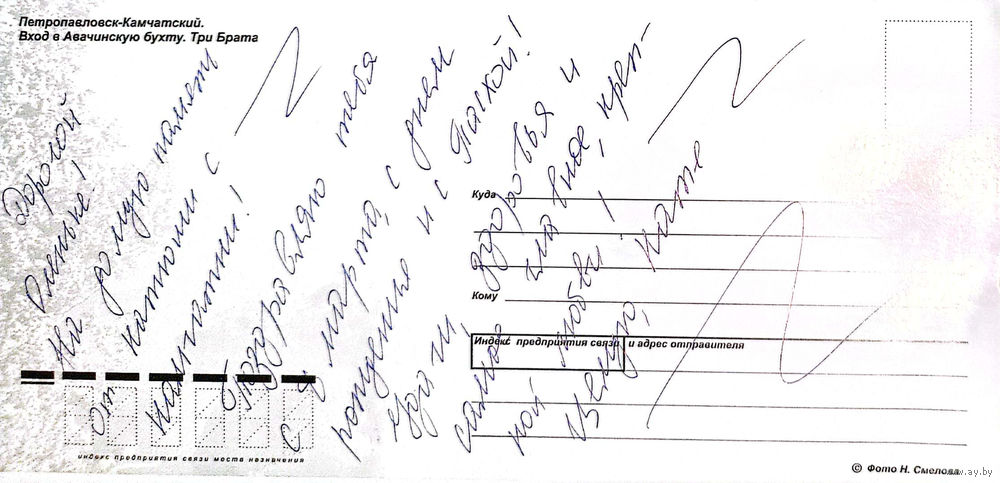 Петропавловск-Камчатский.
Вход в Авачинскую бухту. Три Брата
Дорогой
Оленьке!
На долгую память
от Катюши с
Камчатки!
Поздравляю тебя
с 8 марта, с днем
рождения и с Пасхой!
Удачи, здоровья и
самое главное, креп-
кой любви!
Целую, Катя
Куда
Кому
Индекс предприятия связи и адрес отправителя
индекс предприятия связи места назначения
© Фото Н. Смелова
www.ay.by